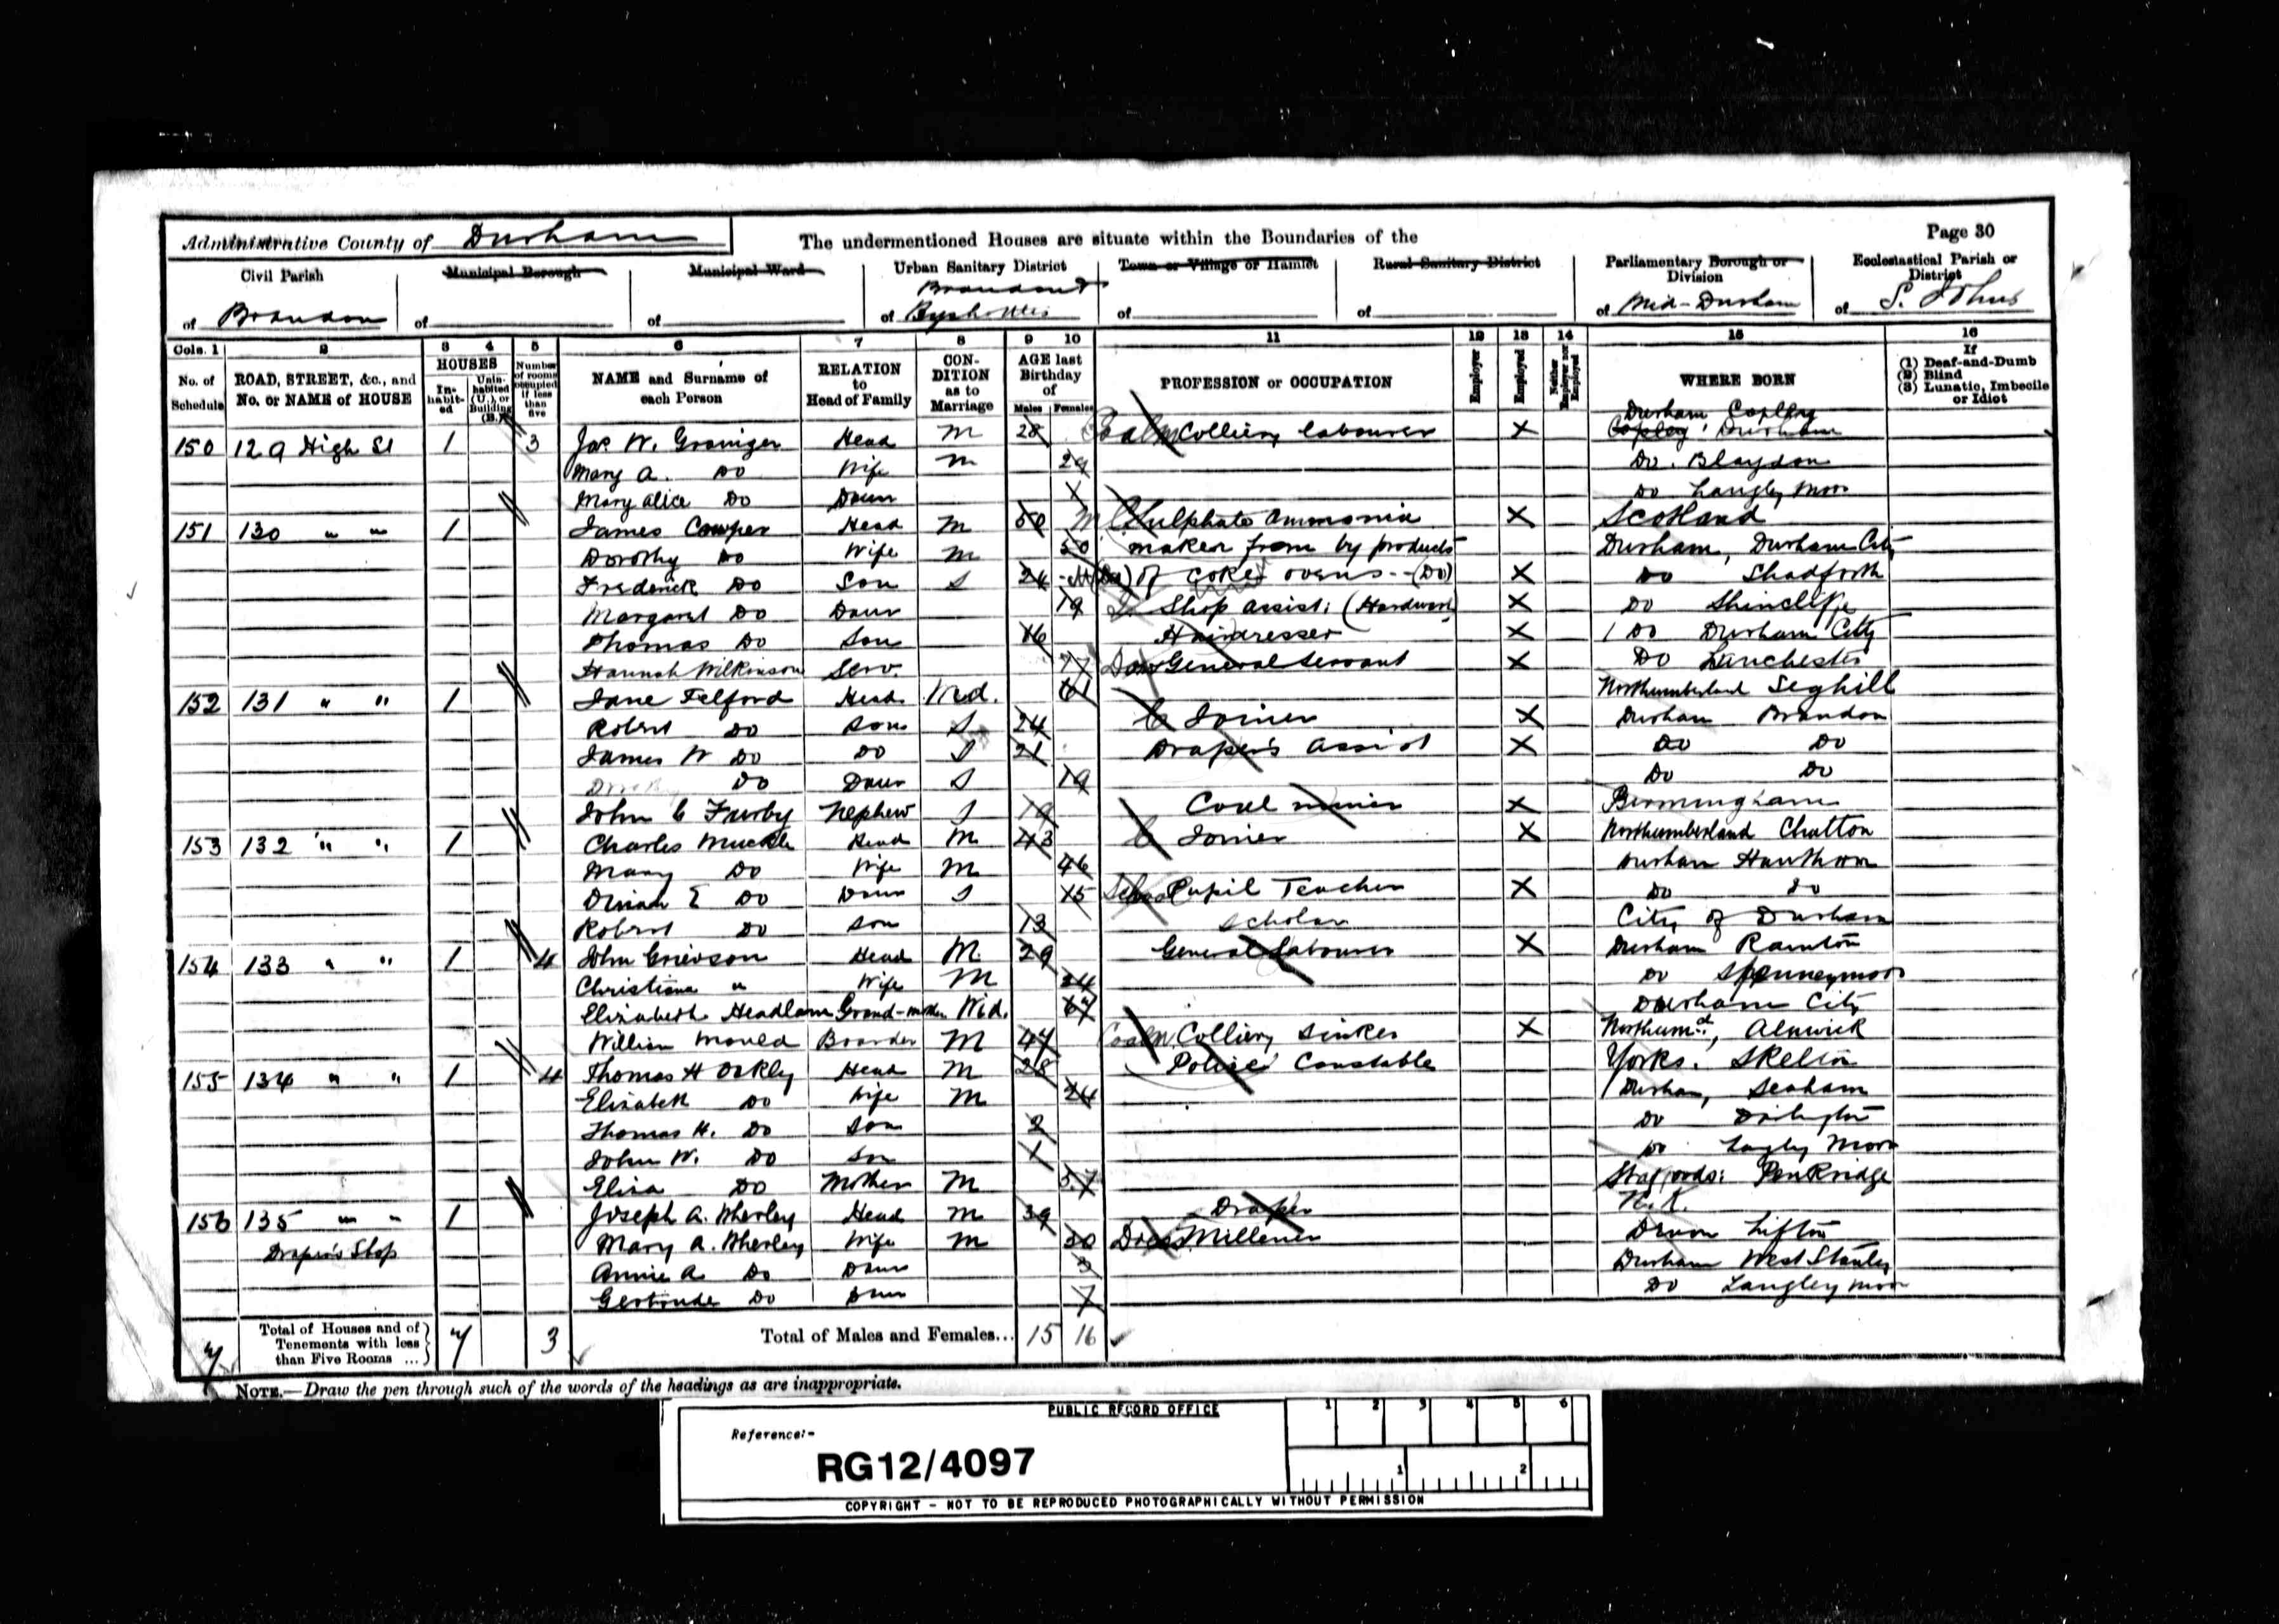 Administrative County of Durham The undermentioned Houses are situate within the Boundaries of the Page 30
Civil Parish Municipal Borough Municipal Ward Urban Sanitary District Town or Village or Hamlet Rural Sanitary District Parliamentary Borough or Division Ecclesiastical Parish or District
of Brandon of of of Brandon & Byshottles of of of Mid-Durham of S. Johns
Cols. 1 2 3 4 5 6 7 8 9 10 11 12 13 14 15 16
No. of Schedule ROAD, STREET, &c., and No. or NAME of HOUSE HOUSES In-habit-ed Unin-habited (U.), or Building (B.) Number of rooms occupied if less than five NAME and Surname of each Person RELATION to Head of Family CON-DITION as to Marriage AGE last Birthday of Males Females PROFESSION or OCCUPATION Employer Employed Neither Employer nor Employed WHERE BORN If (1) Deaf-and-Dumb (2) Blind (3) Lunatic, Imbecile or Idiot
Durham Copley
150 129 High St 1 3 Jas. W. Grainger Head M 28 Colliery labourer X Copley Durham
Mary A. Do Wife M 29 Do. Blaydon
Mary Alice Do Daur Do Langley Moor
151 130 " " 1 James Cowper Head M 50 Sulphate Ammonia X Scotland
Dorothy Do Wife M 50 maker from by products Durham, Durham City
Frederick Do Son S 24 of coke ovens -- (Do) X Do Shadforth
Margaret Do Daur 19 Shop assist: X Do Shincliffe
Thomas Do Son 16 Hairdresser X Do Durham City
Hannah Wilkinson Serv. General Servant X Do Lanchester
152 131 " " 1 Jane Telford Head Wid. 61 Northumberland Seghill
Robert Do Son S 24 Joiner X Durham Brandon
James W Do Do S 21 Draper's Assist X Do Do
Do Daur S 19 Do Do
John C Furby Nephew S 19 Coal miner X Birmingham
153 132 " " 1 Charles Muckle Head M 43 Joiner X Northumberland Chatton
Mary Do Wife M 46 Durham Hawthorn
E Do Daur S 15 Pupil Teacher X Do Do
Robert Do Son 13 Scholar City of Durham
154 133 " " 1 4 John Grievson Head M 29 General Labourer X Durham Rainton
Christiana " Wife M 24 Do Spennymoor
Elizabeth Headlam Grand-mother Wid. 67 Durham City
William Mould Boarder M 47 Colliery Sinker X Northumd., Alnwick
155 134 " " 1 4 Thomas H Oakley Head M 28 Police Constable Yorks. Skelton
Elizabeth Do Wife M 24 Durham, Seaham
Thomas H. Do Son 2 Do Darlington
John W. Do Son 1 Do Langley Moor
Eliza Do Mother M 57 Staffords: Penkridge
156 135 " " 1 Joseph A. Wherley Head M 39 Draper N.K.
Draper's Shop Mary A. Wherley Wife M 30 Millener Devon Lifton
Annie A Do Daur 3 Durham West Stanley
Gertrude Do Daur 7 Do Langley Moor
7 Total of Houses and of Tenements with less than Five Rooms ... 7 3 Total of Males and Females... 15 16
NOTE.—Draw the pen through such of the words of the headings as are inappropriate.
PUBLIC RECORD OFFICE
1 2 3 4 5 6
Reference:-
RG12/4097
1 2
COPYRIGHT - NOT TO BE REPRODUCED PHOTOGRAPHICALLY WITHOUT PERMISSION